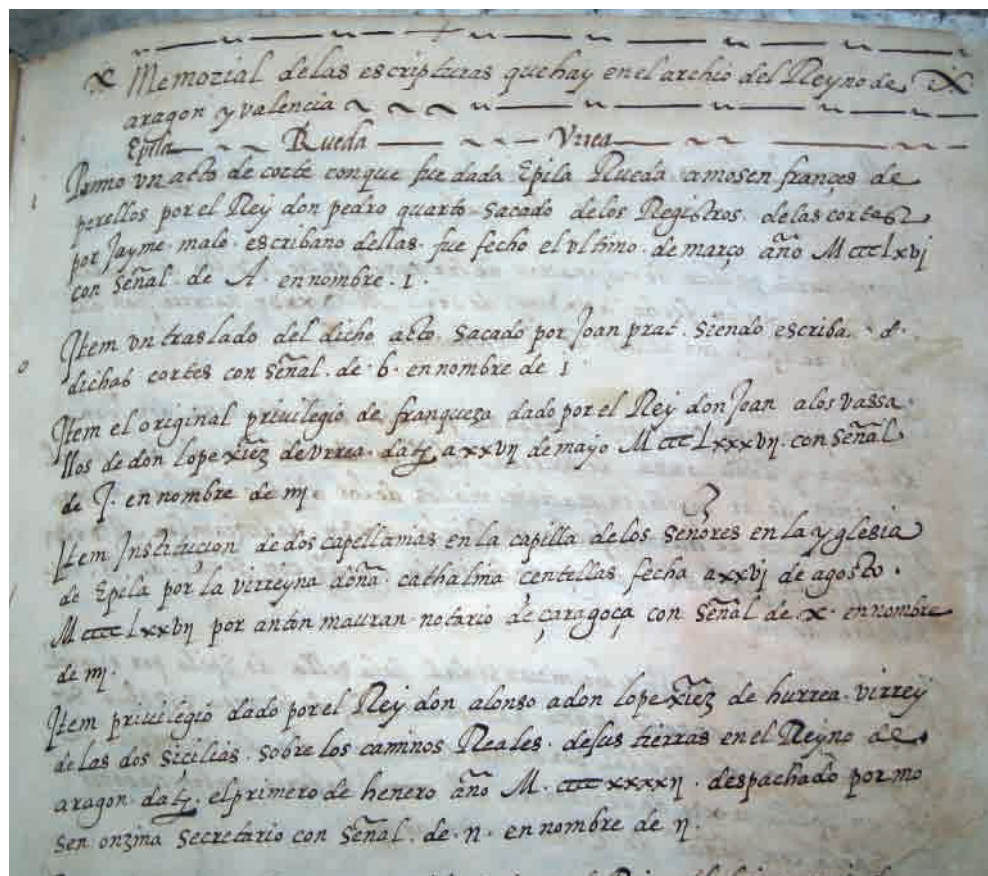 x Memorial delas escripturas que hay enel archio del Reyno de
aragon y valencia
Epila Rueda Vrrea
Primo vn acto de corte conque fue dada Epila Rueda amosen françes de
perellos por el Rey don pedro quarto sacado delos Registros. delas cortes
por Jayme malo. escribano dellas. fue fecho el vltimo. de março año M ccc lxvj
con señal. de A. en nombre. 1.
Jtem vn traslado del dicho acto. sacado por Joan prat. siendo escriba. d.
dichas cortes con señal. de. b. en nombre de j
Jtem el original priuilegio de franqueza dado por el Rey don Joan alos vassa
llos de don lope xiez de vrrea. dat. a xxvij de mayo M ccc Lxxxvij. con señal
de J. en nombre de mj
Jtem Jnstituçion de dos capellanias en la capilla delos señores en la yglesia
de Epila por la virreyna doña. cathalina çentellas fecha axxvj de agosto.
M cccc lxxvij por anton mauran notario de çaragoça con señal de x. en nombre
de mj.
Jtem priuilegio dado por el Rey don alonso adon lope xiez de hurrea. virrey
delas dos siçilias. sobre los caminos Reales. desus tierras enel Reyno de.
aragon. dat. el primero de henero año M. cccc xxxxij. despachado por mo
sen onzina Secretario con señal. de. n. en nombre de ij.